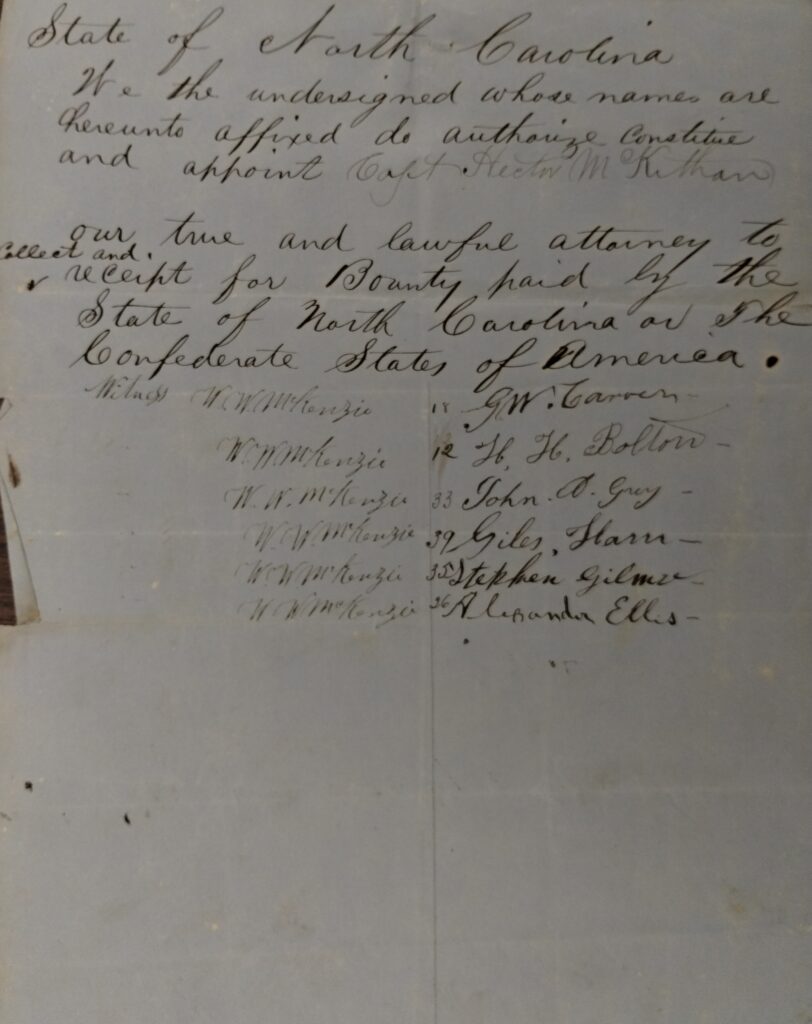 State of North Carolina
We the undersigned whose names are
hereunto affixed do authorize Constitue
and appoint Capt Hector McKethan
our true and lawful attorney to
Collect and
receipt for Bounty paid by the
State of North Carolina or The
Confederate States of America.
Witness W.W. McKenzie 18 G.W. Carver
W.W. McKenzie 12 H. H. Bolton
W. W. McKenzie 33 John. D. Grey
W. W. McKenzie 39 Giles
W W McKenzie 35 Stephen Gilmore
W W McKenzie 36 Alexander Ellis